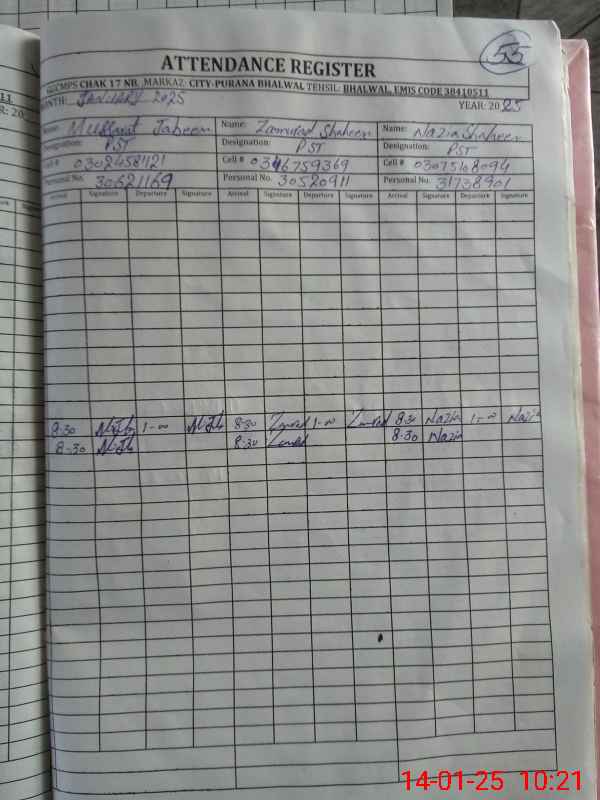 55
ATTENDANCE REGISTER
CHAK 17 NB ,MARKAZ: CITY-PURANA BHALWAL TEHSIL: BHALWAL, EMIS CODE 38410511
MONTH: JANUARY 2025 YEAR: 2025
Name: Jabeen Name: Shaheen Name: Nazia Shaheen
Designation: PST Designation: PST Designation: PST
Cell # 03024581121 Cell # 0346759369 Cell # 03075168094
Personal No. 30621169 Personal No. 30520911 Personal No. 31738901
Arrival Signature Departure Signature Arrival Signature Departure Signature Arrival Signature Departure Signature
8-30 1-00 8-30 1-00 8-30 Nazia 1-00 Nazia
8-30 8-30 8-30 Nazia
14-01-25 10:21